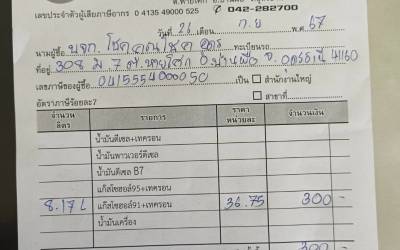 ต.หายโศก อ.บ้านผือ
เลขประจำตัวผู้เสียภาษีอากร 0 4135 49000 525 042-282700
วันที่ 26 เดือน ก.ย พ.ศ 67
นามผู้ซื้อ บจก. โชคคูณโชค อุดร ทะเบียนรถ
ที่อยู่ 308 ม 7 ต.หายโศก อ.บ้านผือ จ.อุดรธานี 41160
เลขภาษีของผู้ซื้อ 0415554000050 เป็น สำนักงานใหญ่
อัตราภาษีร้อยละ7 สาขาที่
จำนวนลิตร รายการ ราคาหน่วยละ จำนวนเงิน
น้ำมันดีเซล+เทครอน
น้ำมันพาวเวอร์ดีเซล
น้ำมันดีเซล B7
แก๊สโซฮอล์95+เทครอน
8.17 L แก๊สโซฮอล์91+เทครอน 36.75 300 -
น้ำมันเครื่อง
300 -